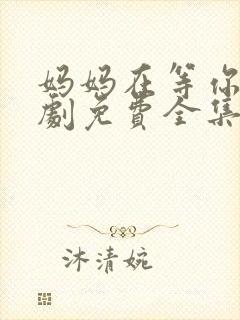 妈妈在等你
劇免費全集
沐清婉